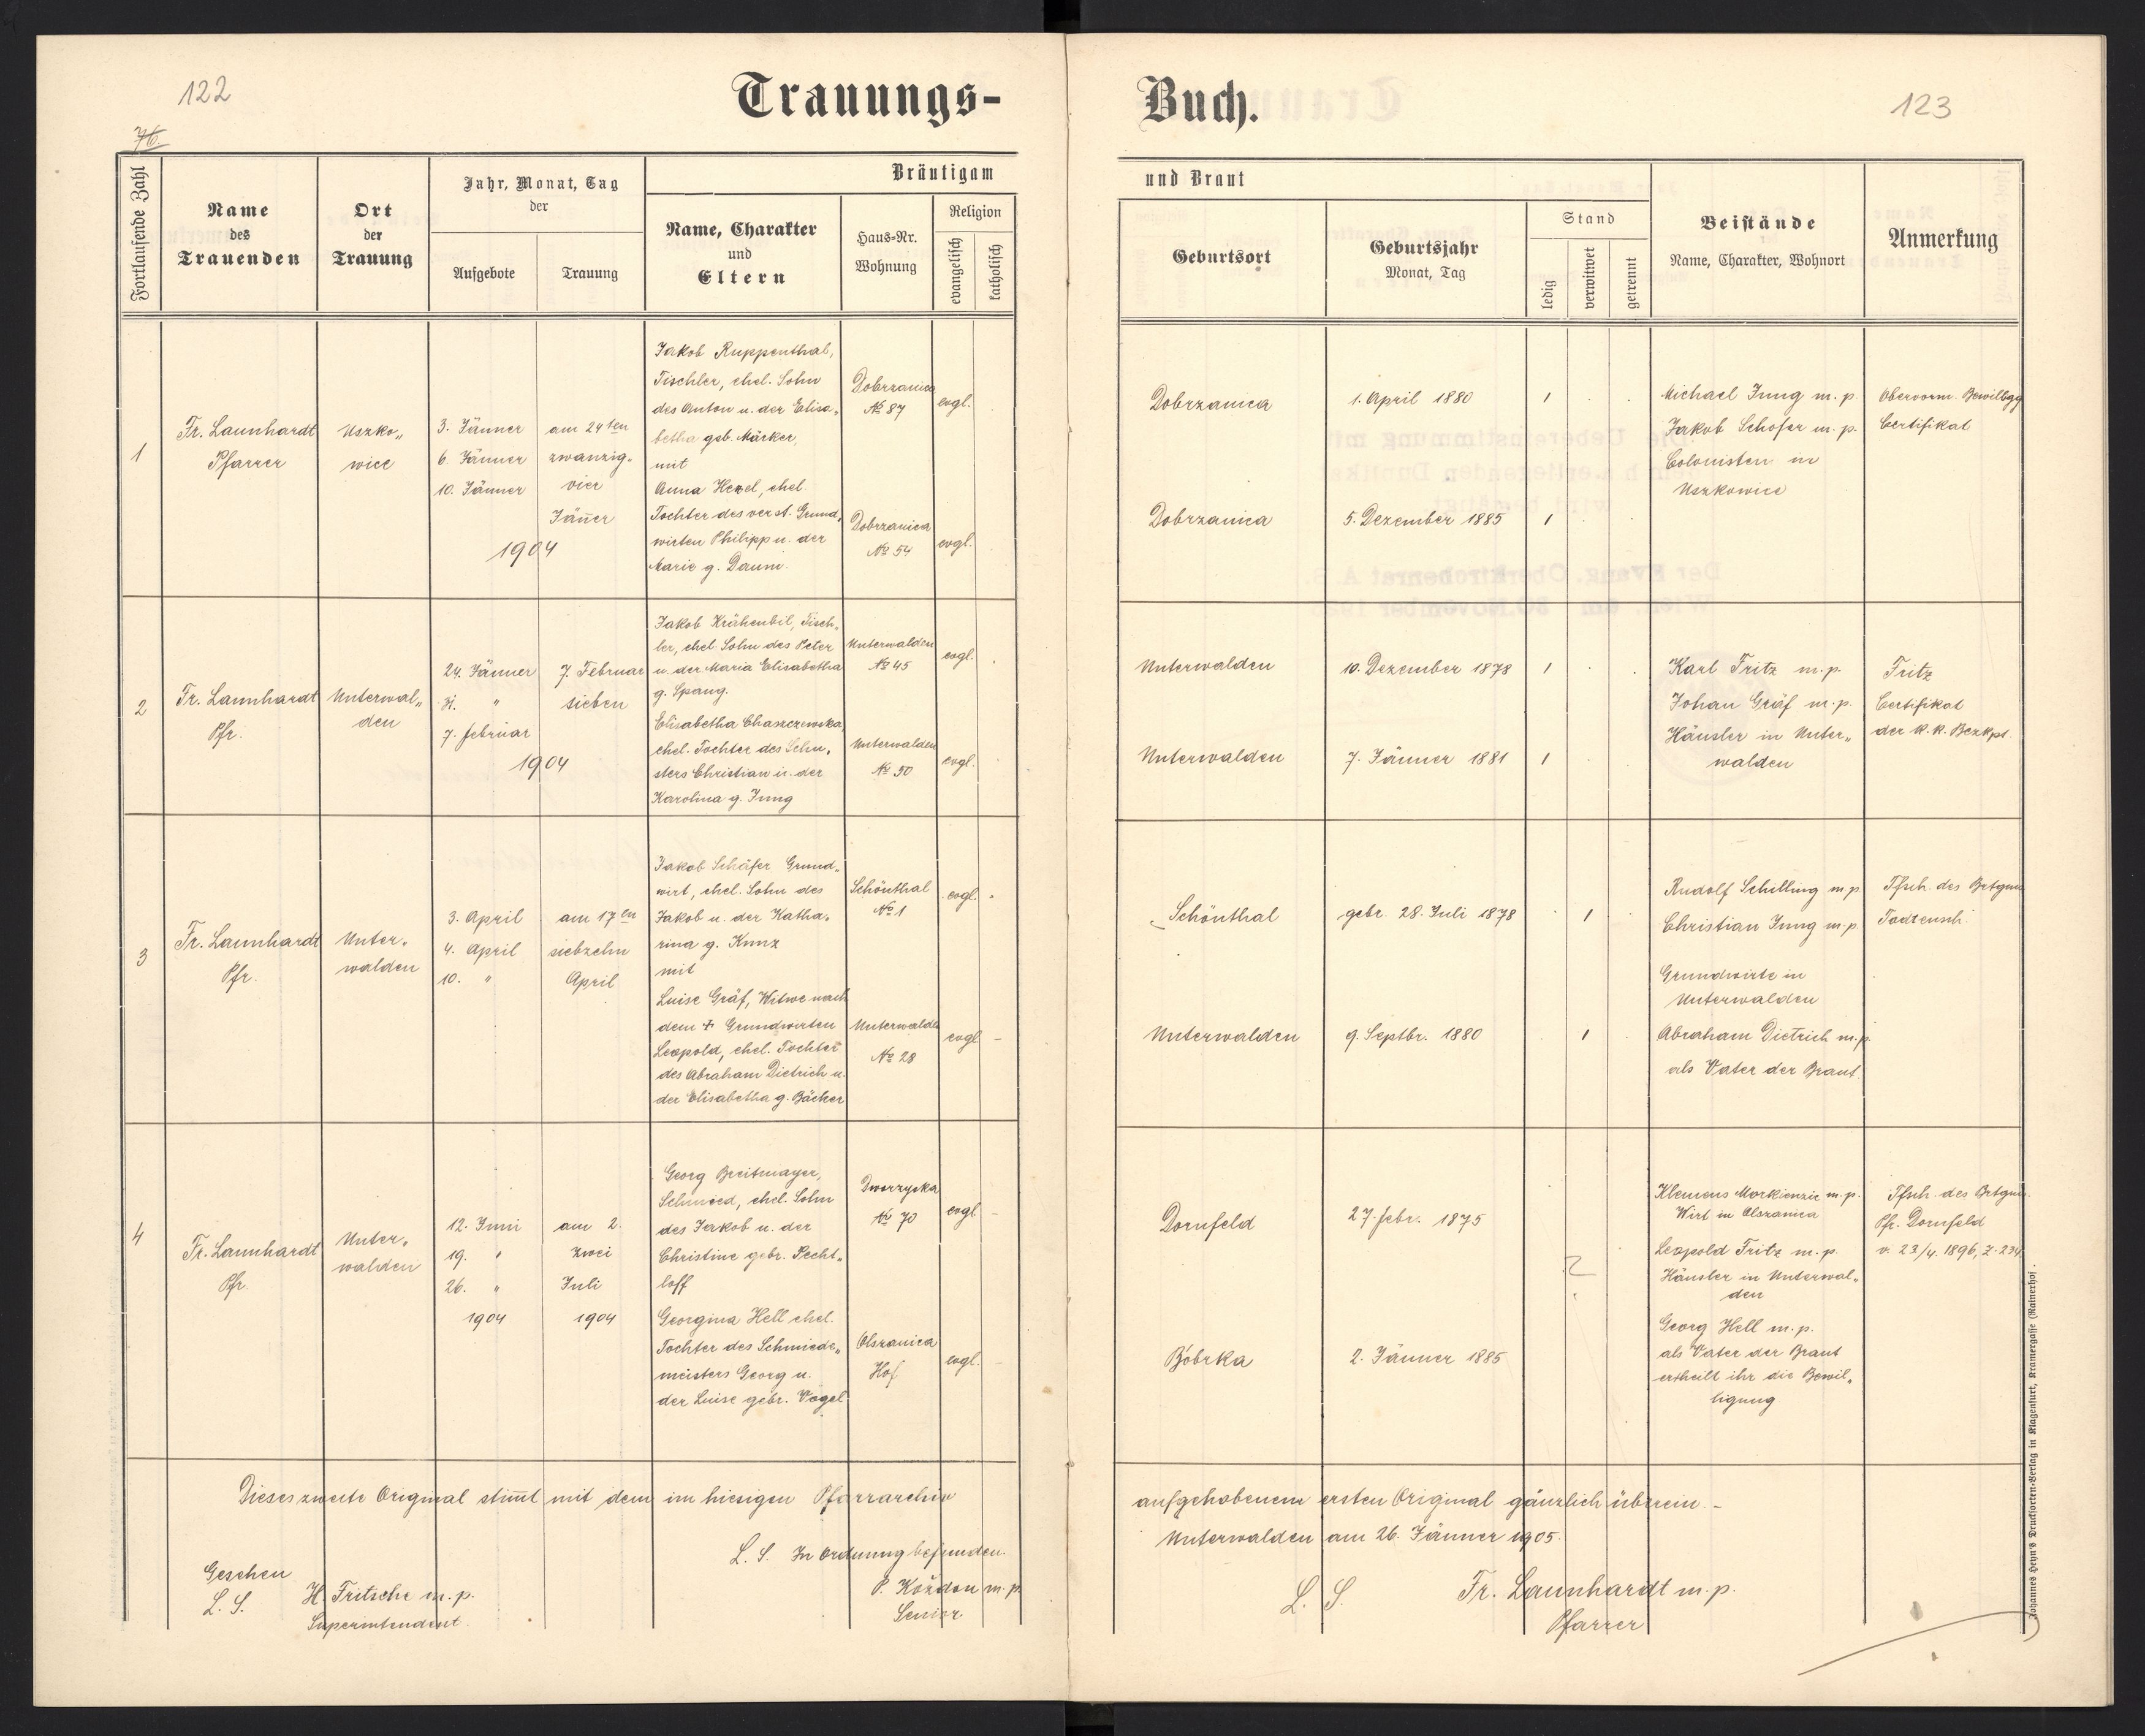 122
Trauungs-
76.
Fortlaufende Zahl
Name
des
Trauenden
Ort
der
Trauung
Jahr, Monat, Tag
der
Aufgebote
Trauung
Bräutigam
Name, Charakter
und
Eltern
Haus-Nr.
Wohnung
Religion
evangelisch
katholisch
1
Fr. Launhardt
Pfarrer
Uszko„
wice
3. Jänner
6. Jänner
10. Jänner
am 24ten
zwanzig-
vier
Jäner
1904
Jakob Ruppenthal,
Tischler, ehel. Sohn
des Anton u. der Elisa„
betha geb. Märker,
mit
Anna Hezel, ehel.
Tochter des verst. Grund„
wirten Philipp u. der
Marie g. Daum.
Dobrzanica
No 87
Dobrzanica
No 54
evgl.
evgl.
2
Fr. Launhardt
Pfr.
Unterwal„
den
24. Jänner
31. "
7. februar
7. Februar
sieben
1904
Jakob Krähenbil, Tisch„
ler, ehel. Sohn des Peter
u. der Maria Elisabetha
g. Spang.
Elisabetha Chaszczewska,
ehel. Tochter des Schu„
sters Christian u. der
Karolina g. Jung
Unterwalden
No 45
Unterwalden
No 50
evgl.
evgl.
3
Fr. Launhardt
Pfr.
Unter„
walden
3. April
4. April
10. "
am 17en
siebzehn
April
Jakob Schäfer Grund„
wirt, ehel. Sohn des
Jakob u. der Katha„
rina g. Kunz
mit
Luise Gräf, Witwe nach
dem + Grundwirten
Leopold, ehel. Tochter
des Abraham Dietrich u.
der Elisabetha g. Bäcker
Schönthal
No 1
Unterwalde
No 28
evgl.
evgl
4
Fr. Launhardt
Pfr.
Unter„
walden
12. Juni
19. "
26. "
1904
am 2.
zwei
Juli
1904
Georg Breitmayer,
Schmied, ehel. Sohn
des Jakob u. der
Christine gebr. Pecht„
loff
Georgina Hell ehel.
Tochter des Schmiede„
meisters Georg u.
der Luise gebr. Vogel
Dworzyska
No 70
Olszanica
Hof
evgl
evgl.
Dieses zweite Original stimt mit dem im hiesigen Pfarrarchiv
L. S. In Ordnung befunden.
P. Kozdon m. p.
Senior
Gesehen
L. S. H. Fritsche m. p.
Superintendent.
Buch.
123
und Braut
Geburtsort
Geburtsjahr
Monat, Tag
Stand
ledig
verwitwet
getrennt
Beistände
Name, Charakter, Wohnort
Anmerkung
Dobrzanica
1. April 1880
1
Dobrzanica
5. Dezember 1885
1
Michael Jung m. p.
Jakob Schofer m. p.
Colonisten in
Uszkowice
Obervorm. Bewillgg
Certifikat
Unterwalden
10. Dezember 1878
1
Unterwalden
7. Jänner 1881
1
Karl Fritz m. p.
Johan Gräf m. p.
Häusler in Unter„
walden
Fritz
Certifikat
der k. k. Bezkpt.
Schönthal
gebr. 28. Juli 1878
1
Unterwalden
9. Septbr. 1880
1
Rudolf Schilling m. p.
Christian Jung m. p.
Grundwirte in
Unterwalden
Abraham Dietrich m. p.
als Vater der Braut.
Tfsch. des Brtgms
Todtensch.
Dornfeld
27. febr. 1875
Bóbrka
2. Jänner 1885
?
Klemens Morkienzie m. p.
Wirt in Olszanica
Leopold Fritz m. p.
Häusler in Unterwal„
den
Georg Hell m. p.
als Vater der Braut
ertheilt ihr die Bewil„
ligung
Tfsch. des Brtgms
Pfr. Dornfeld
v. 23/4. 1896, Z. 234
aufgehobenem ersten Original gänzlich überein. –
Unterwalden am 26. Jänner 1905.
L. S. Fr. Launhardt m. p.
Pfarrer
Johannes Heyn's Drucksorten-Verlag in Klagenfurt, Kramergasse (Rainerhof).